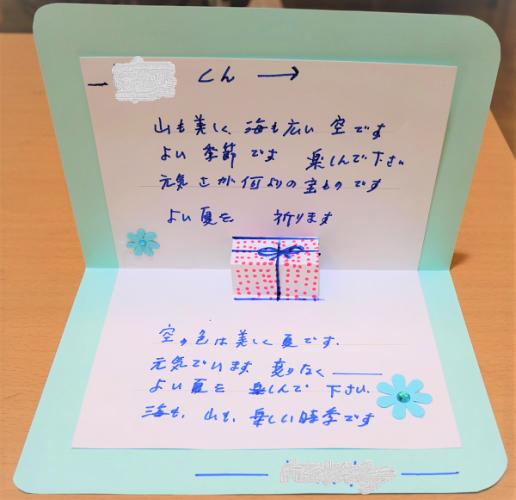 くん →
山も美しく、海も広い 空です
よい 季節 です 楽しんで下さい
元気さが何よりの宝ものです
よい夏を 祈ります
空の色は美しく夏です.
元気でいます 変りなく
よい夏を 楽しんで 下さい.
海も、山も、楽しい時季です